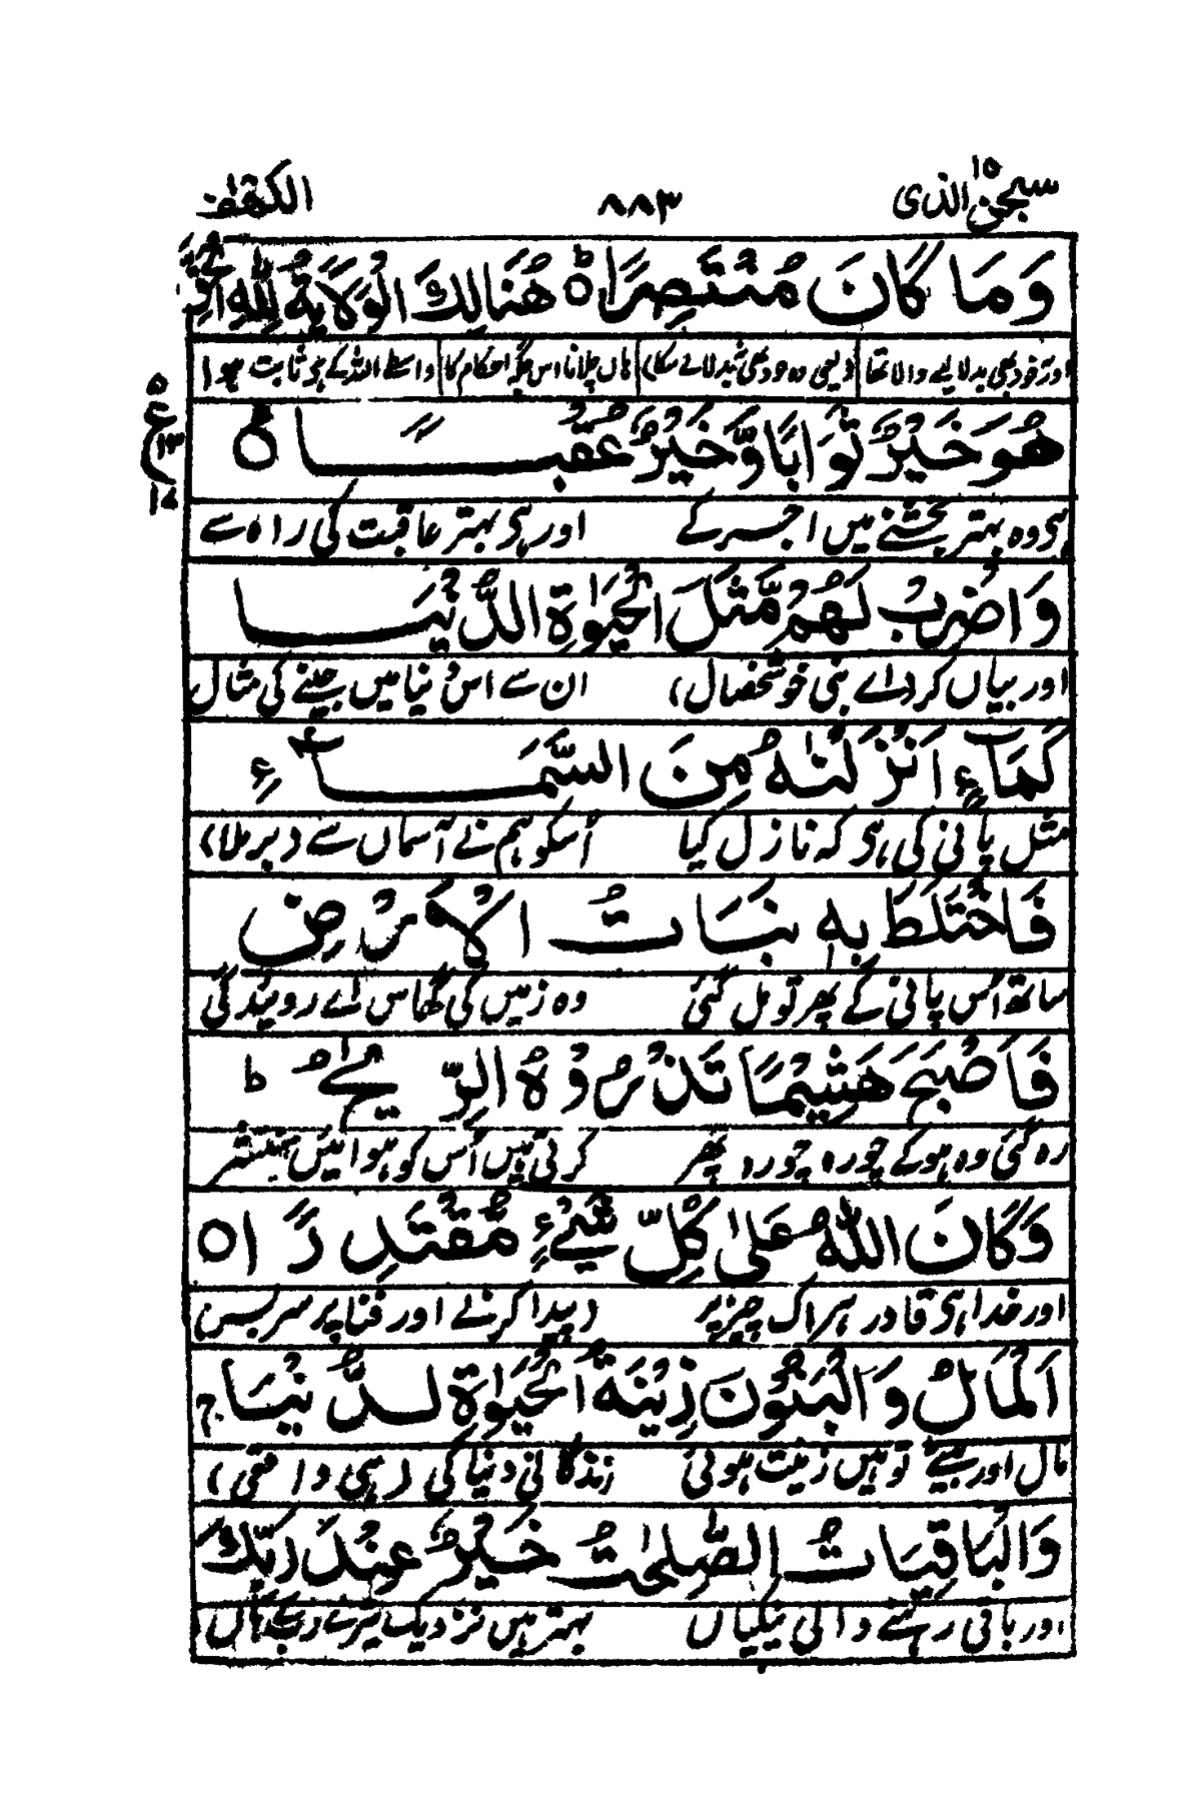 سبحٰن الذی ۱۵
۸۸۳
الکہف
وَمَا كَانَ مُنْتَصِرًا ؕ هُنَالِكَ الْوَلَايَةُ لِلّٰهِ الْحَقِّ
اور نہ خود بھی بدلا لینے والا تھا (یعنی وہ خود بھی نہ بدلا لے سکا) ہاں چلانا اس جگہ احکام کا واسطے اللہ کے ہی ثابت ہوا
هُوَ خَيْرٌ ثَوَابًا وَّخَيْرٌ عُقْبًا
۵
ع
۱۳
۱۷
ہی وہ بہتر بخشنے میں اجر کے اور ہی بہتر عاقبت کی راہ سے
وَاضْرِبْ لَهُمْ مَّثَلَ الْحَيٰوةِ الدُّنْيَا
اور بیاں کر (اے نبی خوشخصال) ان سے اس دنیا میں جینے کی مثال
كَمَآءٍ اَنْزَلْنٰهُ مِنَ السَّمَآءِ
مثل پانی کی ہی کہ نازل کیا اُسکو ہم نے آسماں سے (برملا)
فَاخْتَلَطَ بِهٖ نَبَاتُ الْاَرْضِ
ساتھ اُس پانی کے پھر تو مل گئی وہ زمیں کی گھاس اے روئیدگی
فَاَصْبَحَ هَشِيْمًا تَذْرُوْهُ الرِّيٰحُ ؕ
رہ گئی وہ ہو کے چورہ چورہ پھر کرتی ہیں اُس کو ہوائیں منتشر
وَكَانَ اللّٰهُ عَلٰى كُلِّ شَيْءٍ مُّقْتَدِرًا ۝
اور خدا ہی قادر ہر اک چیز پر (پیدا کرنے اور فنا پر سر بسر)
اَلْمَالُ وَالْبَنُوْنَ زِيْنَةُ الْحَيٰوةِ الدُّنْيَا ۚ
مال اور بیٹے تو ہیں زینت ہوئی زندگانی دنیا کی (ہی واقعی)
وَالْبَاقِيَاتُ الصّٰلِحٰتُ خَيْرٌ عِنْدَ رَبِّكَ
اور باقی رہنے والی نیکیاں بہتر ہیں نزدیک تیرے رب کے ہاں